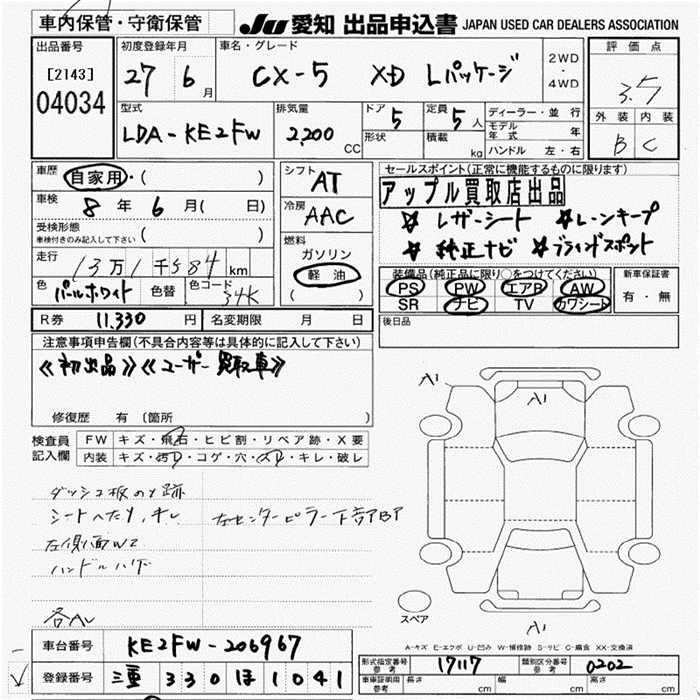 車内保管・守衛保管
JU 愛知 出品申込書 JAPAN USED CAR DEALERS ASSOCIATION
出品番号
[2143]
04034
初度登録年月
27 6月
車名・グレード
CX-5 XD Lパッケージ
2WD
・
4WD
評価点
3.5
外装 内装
B C
型式
LDA-KE2FW
排気量
2,200 CC
ドア
5
形状
定員
5人
積載 kg
ディーラー・並行
モデル年式 年
ハンドル 左・右
車歴 自家用・( )
車検 8年 6月( 日)
受検形態
車検付きのみ記入して下さい ( )
走行 13万1千584km
色 パールホワイト 色替 色コード 34K
シフト AT
冷房 AAC
燃料
ガソリン
軽油
( )
セールスポイント(正常に機能するものに限ります)
アップル買取店出品
☆ レザーシート ☆レーンキープ
☆ 純正ナビ ☆ブラインドスポット
装備品(純正品に限り○をつけてください)
PS PW エアB AW
SR ナビ TV カワシート
新車保証書
有・無
後日品
R券 11,330円 名変期限 月 日
注意事項申告欄(不具合内容等は具体的に記入して下さい)
《初出品》《ユーザー買取車》
修復歴 有 (箇所 )
検査員記入欄
FW キズ・飛石・ヒビ割・リペア跡・X要
内装 キズ・汚レ・コゲ・穴・スレ・キレ・破レ
ダッシュ板のり跡
シートへたり、キレ
左センターピラー下部BP
左側面W2
ハンドルハゲ
各AU
A1
A1
A1
スペア
A-キズ E-エクボ U-凹み W-補修跡 S-サビ C-腐食 XX-交換済
車台番号 KE2FW-206967
登録番号 三重 330 ほ 1041
形式指定番号 参考 17117 類別区分番号 参考 0202
車庫証明用 参考 長さ cm 幅 cm 高さ cm